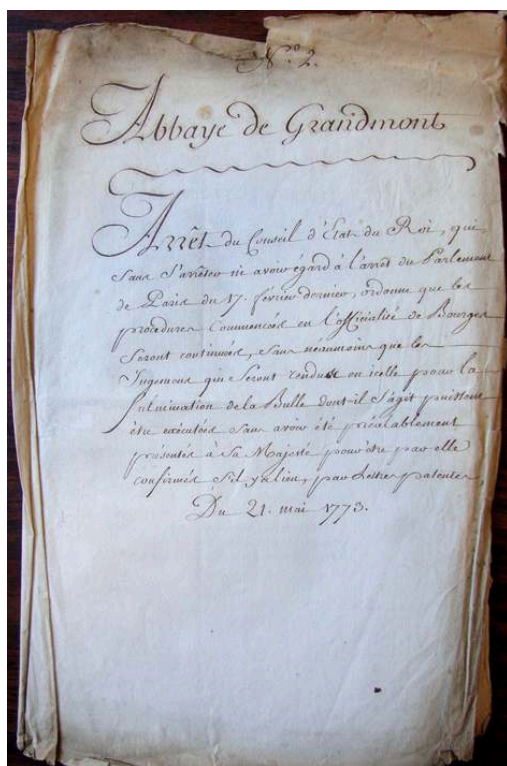 N.° 2.
Abbaye de Grandmont
Arrêt du Conseil d'Etat du Roi, qui
sans s'arrêter ni avoir égard à l'arrêt du Parlement
de Paris du 17. février dernier, ordonne que les
procedures commencées en l'officialité de Bourges
seront continuées, sans néanmoins que les
Jugemens qui seront rendus en icelle pour la
fulmination de la Bulle dont-il s'agit puissent
être exécutés sans avoir été préalablement
présentés à Sa Majesté pour être par elle
confirmés s'il y a lieu, par Lettres patentes,
Du 21. mai 1773.